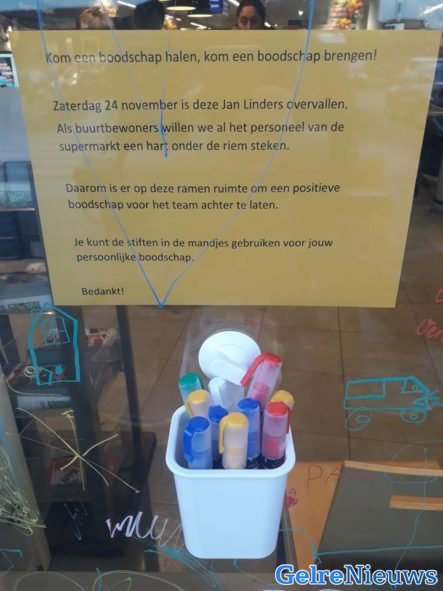 Kom een boodschap halen, kom een boodschap brengen!
Zaterdag 24 november is deze Jan Linders overvallen.
Als buurtbewoners willen we al het personeel van de
supermarkt een hart onder de riem steken.
Daarom is er op deze ramen ruimte om een positieve
boodschap voor het team achter te laten.
Je kunt de stiften in de mandjes gebruiken voor jouw
persoonlijke boodschap.
Bedankt!
GelreNieuws